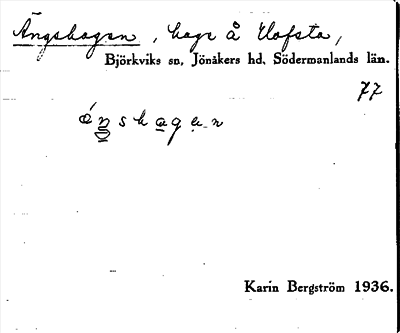 Ängshagen, hage å Hofsta,
Björkviks sn, Jönåkers hd, Södermanlands län.
77
áṉshaga̱n
Karin Bergström 1936.